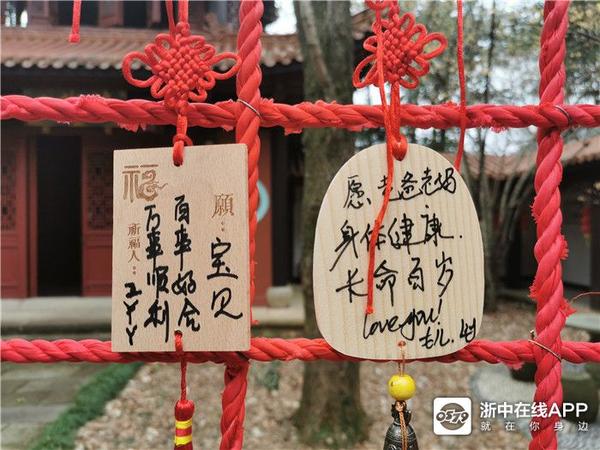 福
願：宝贝
百年好合
万事顺利
祈福人：
愿老爸老妈
身体健康.
长命百岁
love you!
浙中在线APP
就在你身边